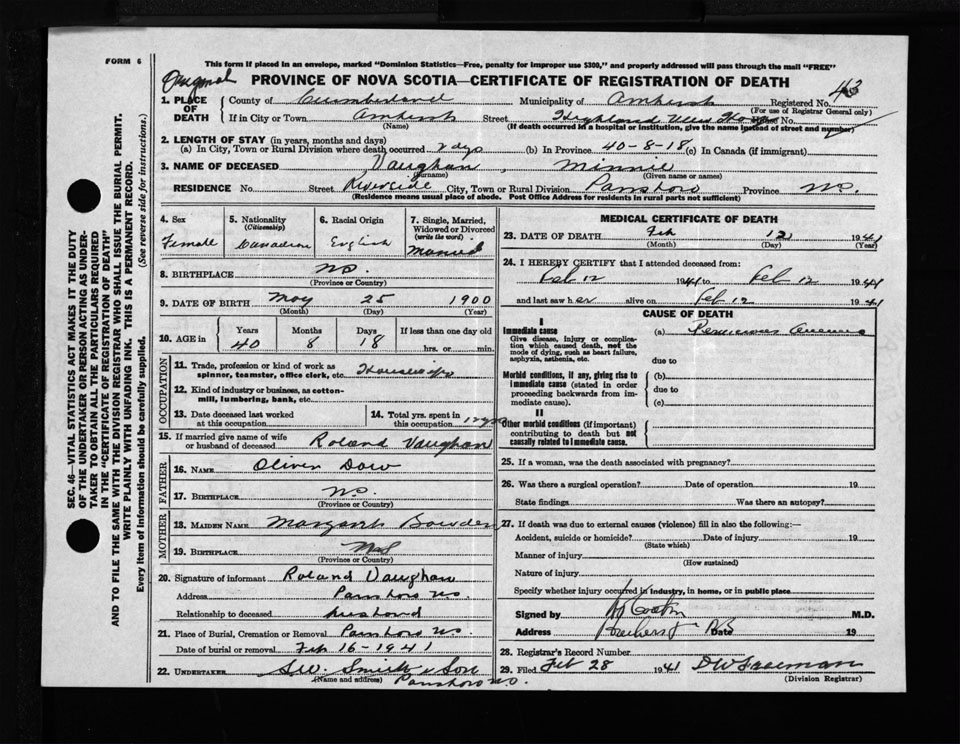 FORM 6
This form if placed in an envelope, marked "Dominion Statistics—Free, penalty for improper use $300," and properly addressed will pass through the mail "FREE"
Original
PROVINCE OF NOVA SCOTIA—CERTIFICATE OF REGISTRATION OF DEATH
43
1. PLACE OF DEATH
County of Cumberland Municipality of Amherst Registered No.
(For use of Registrar General only)
If in City or Town Amherst Street Highland View House No.
(Name) (If death occurred in a hospital or institution, give the name instead of street and number)
2. LENGTH OF STAY (in years, months and days)
(a) In City, Town or Rural Division where death occurred 2 dys (b) In Province 40-8-18 (c) In Canada (if immigrant)
3. NAME OF DECEASED Vaughan, Minnie
(Surname) (Given name or names)
RESIDENCE No. Street Riverside City, Town or Rural Division Parrsboro Province N.S.
(Residence means usual place of abode. Post Office Address for residents in rural parts not sufficient)
4. Sex Female
5. Nationality (Citizenship) Canadian
6. Racial Origin English
7. Single, Married, Widowed or Divorced (write the word) Married
8. BIRTHPLACE N.S.
(Province or Country)
9. DATE OF BIRTH May 25 1900
(Month) (Day) (Year)
10. AGE in Years 40 Months 8 Days 18 If less than one day old
hrs. or min.
OCCUPATION
11. Trade, profession or kind of work as spinner, teamster, office clerk, etc. Housewife
12. Kind of industry or business, as cotton-mill, lumbering, bank, etc.
13. Date deceased last worked at this occupation
14. Total yrs. spent in this occupation 12 yrs
15. If married give name of wife or husband of deceased Roland Vaughan
FATHER
16. NAME Oliver Dow
17. BIRTHPLACE N.S.
(Province or Country)
MOTHER
18. MAIDEN NAME Margaret Bowden
19. BIRTHPLACE N.S.
(Province or Country)
20. Signature of informant Roland Vaughan
Address Parrsboro N.S.
Relationship to deceased husband
21. Place of Burial, Cremation or Removal Parrsboro N.S.
Date of burial or removal Feb 16-1941
22. UNDERTAKER S.W. Smith & Son
(Name and address) Parrsboro N.S.
MEDICAL CERTIFICATE OF DEATH
23. DATE OF DEATH Feb 12 1941
(Month) (Day) (Year)
24. I HEREBY CERTIFY that I attended deceased from:
Feb 12 1941 to Feb 12 1941
and last saw her alive on Feb 12 1941
CAUSE OF DEATH
I
Immediate cause (a) Pernicious Anemia
Give disease, injury or complication which caused death, not the mode of dying, such as heart failure, asphyxia, asthenia, etc.
due to
Morbid conditions, if any, giving rise to immediate cause (stated in order proceeding backwards from immediate cause).
(b)
due to
(c)
II
Other morbid conditions (if important) contributing to death but not causally related to immediate cause.
25. If a woman, was the death associated with pregnancy?
26. Was there a surgical operation? Date of operation 19
State findings Was there an autopsy?
27. If death was due to external causes (violence) fill in also the following:—
Accident, suicide or homicide? Date of injury 19
(State which)
Manner of injury
(How sustained)
Nature of injury
Specify whether injury occurred in industry, in home, or in public place
Signed by M.D.
Address Date 19
28. Registrar's Record Number
29. Filed Feb 28 1941
(Division Registrar)
SEC. 46—VITAL STATISTICS ACT MAKES IT THE DUTY
OF THE UNDERTAKER OR PERSON ACTING AS UNDER-
TAKER TO OBTAIN ALL THE PARTICULARS REQUIRED
IN THE "CERTIFICATE OF REGISTRATION OF DEATH"
AND TO FILE THE SAME WITH THE DIVISION REGISTRAR WHO SHALL ISSUE THE BURIAL PERMIT.
WRITE PLAINLY WITH UNFADING INK. THIS IS A PERMANENT RECORD.
Every item of information should be carefully supplied. (See reverse side for instructions.)